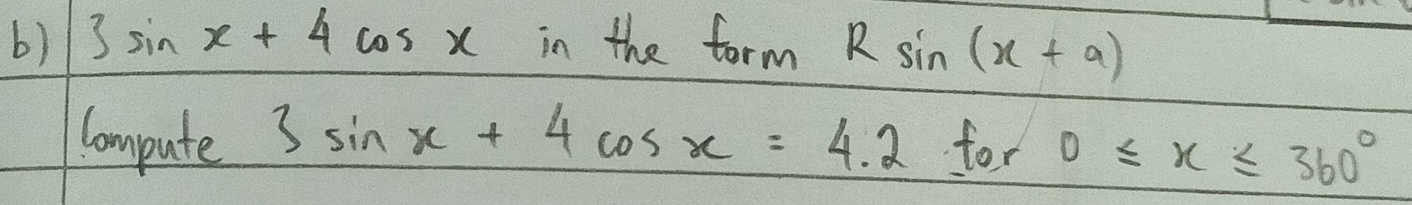 b) 3 sin x + 4 cos x in the form R sin (x + a)
Compute 3 sin x + 4 cos x = 4.2 for 0 ≤ x ≤ 360°